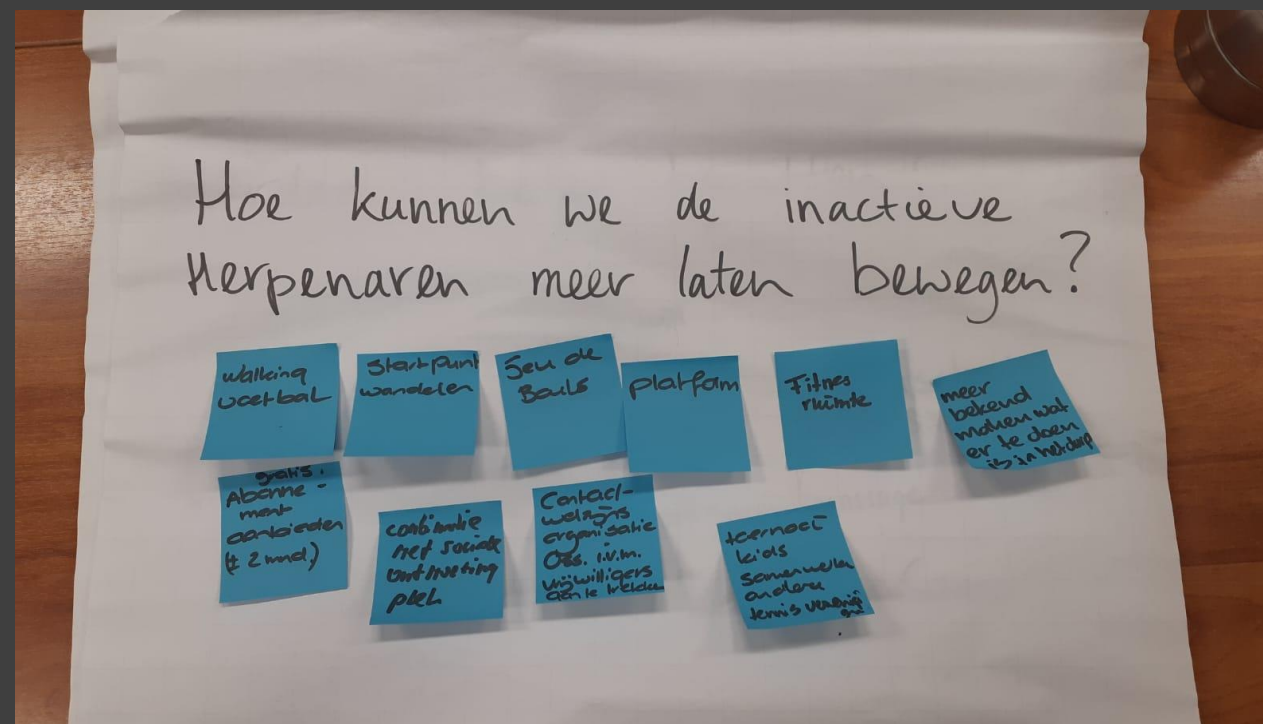 Hoe kunnen we de inactieve
Herpenaren meer laten bewegen?
Walking
voetbal
Startpunt
wandelen
Jeu de
Bouls
platform
Fitnes
ruimte
meer
bekend
maken wat
er te doen
is in het dorp
gratis.
Abonne-
ment
aanbieden
(± 2 mnd.)
combinatie
met sociale
ontmoeting
plek
Contact-
welzijns
organisatie
Oss. i.v.m.
vrijwilligers
aan te trekken
toernooi
kids
samenwerken
andere
tennis